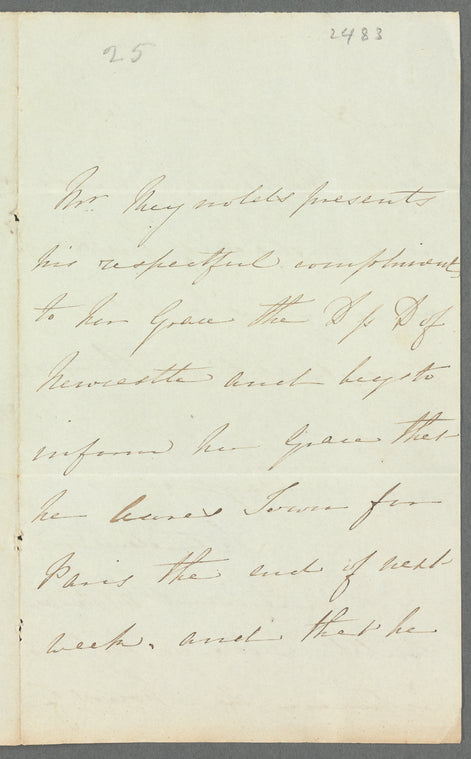 25 2483
Mr. Reynolds presents
his respectful compliments
to her Grace the D of
Newcastle and begs to
inform her Grace that
he leaves Town for
Paris the end of next
week. and that he